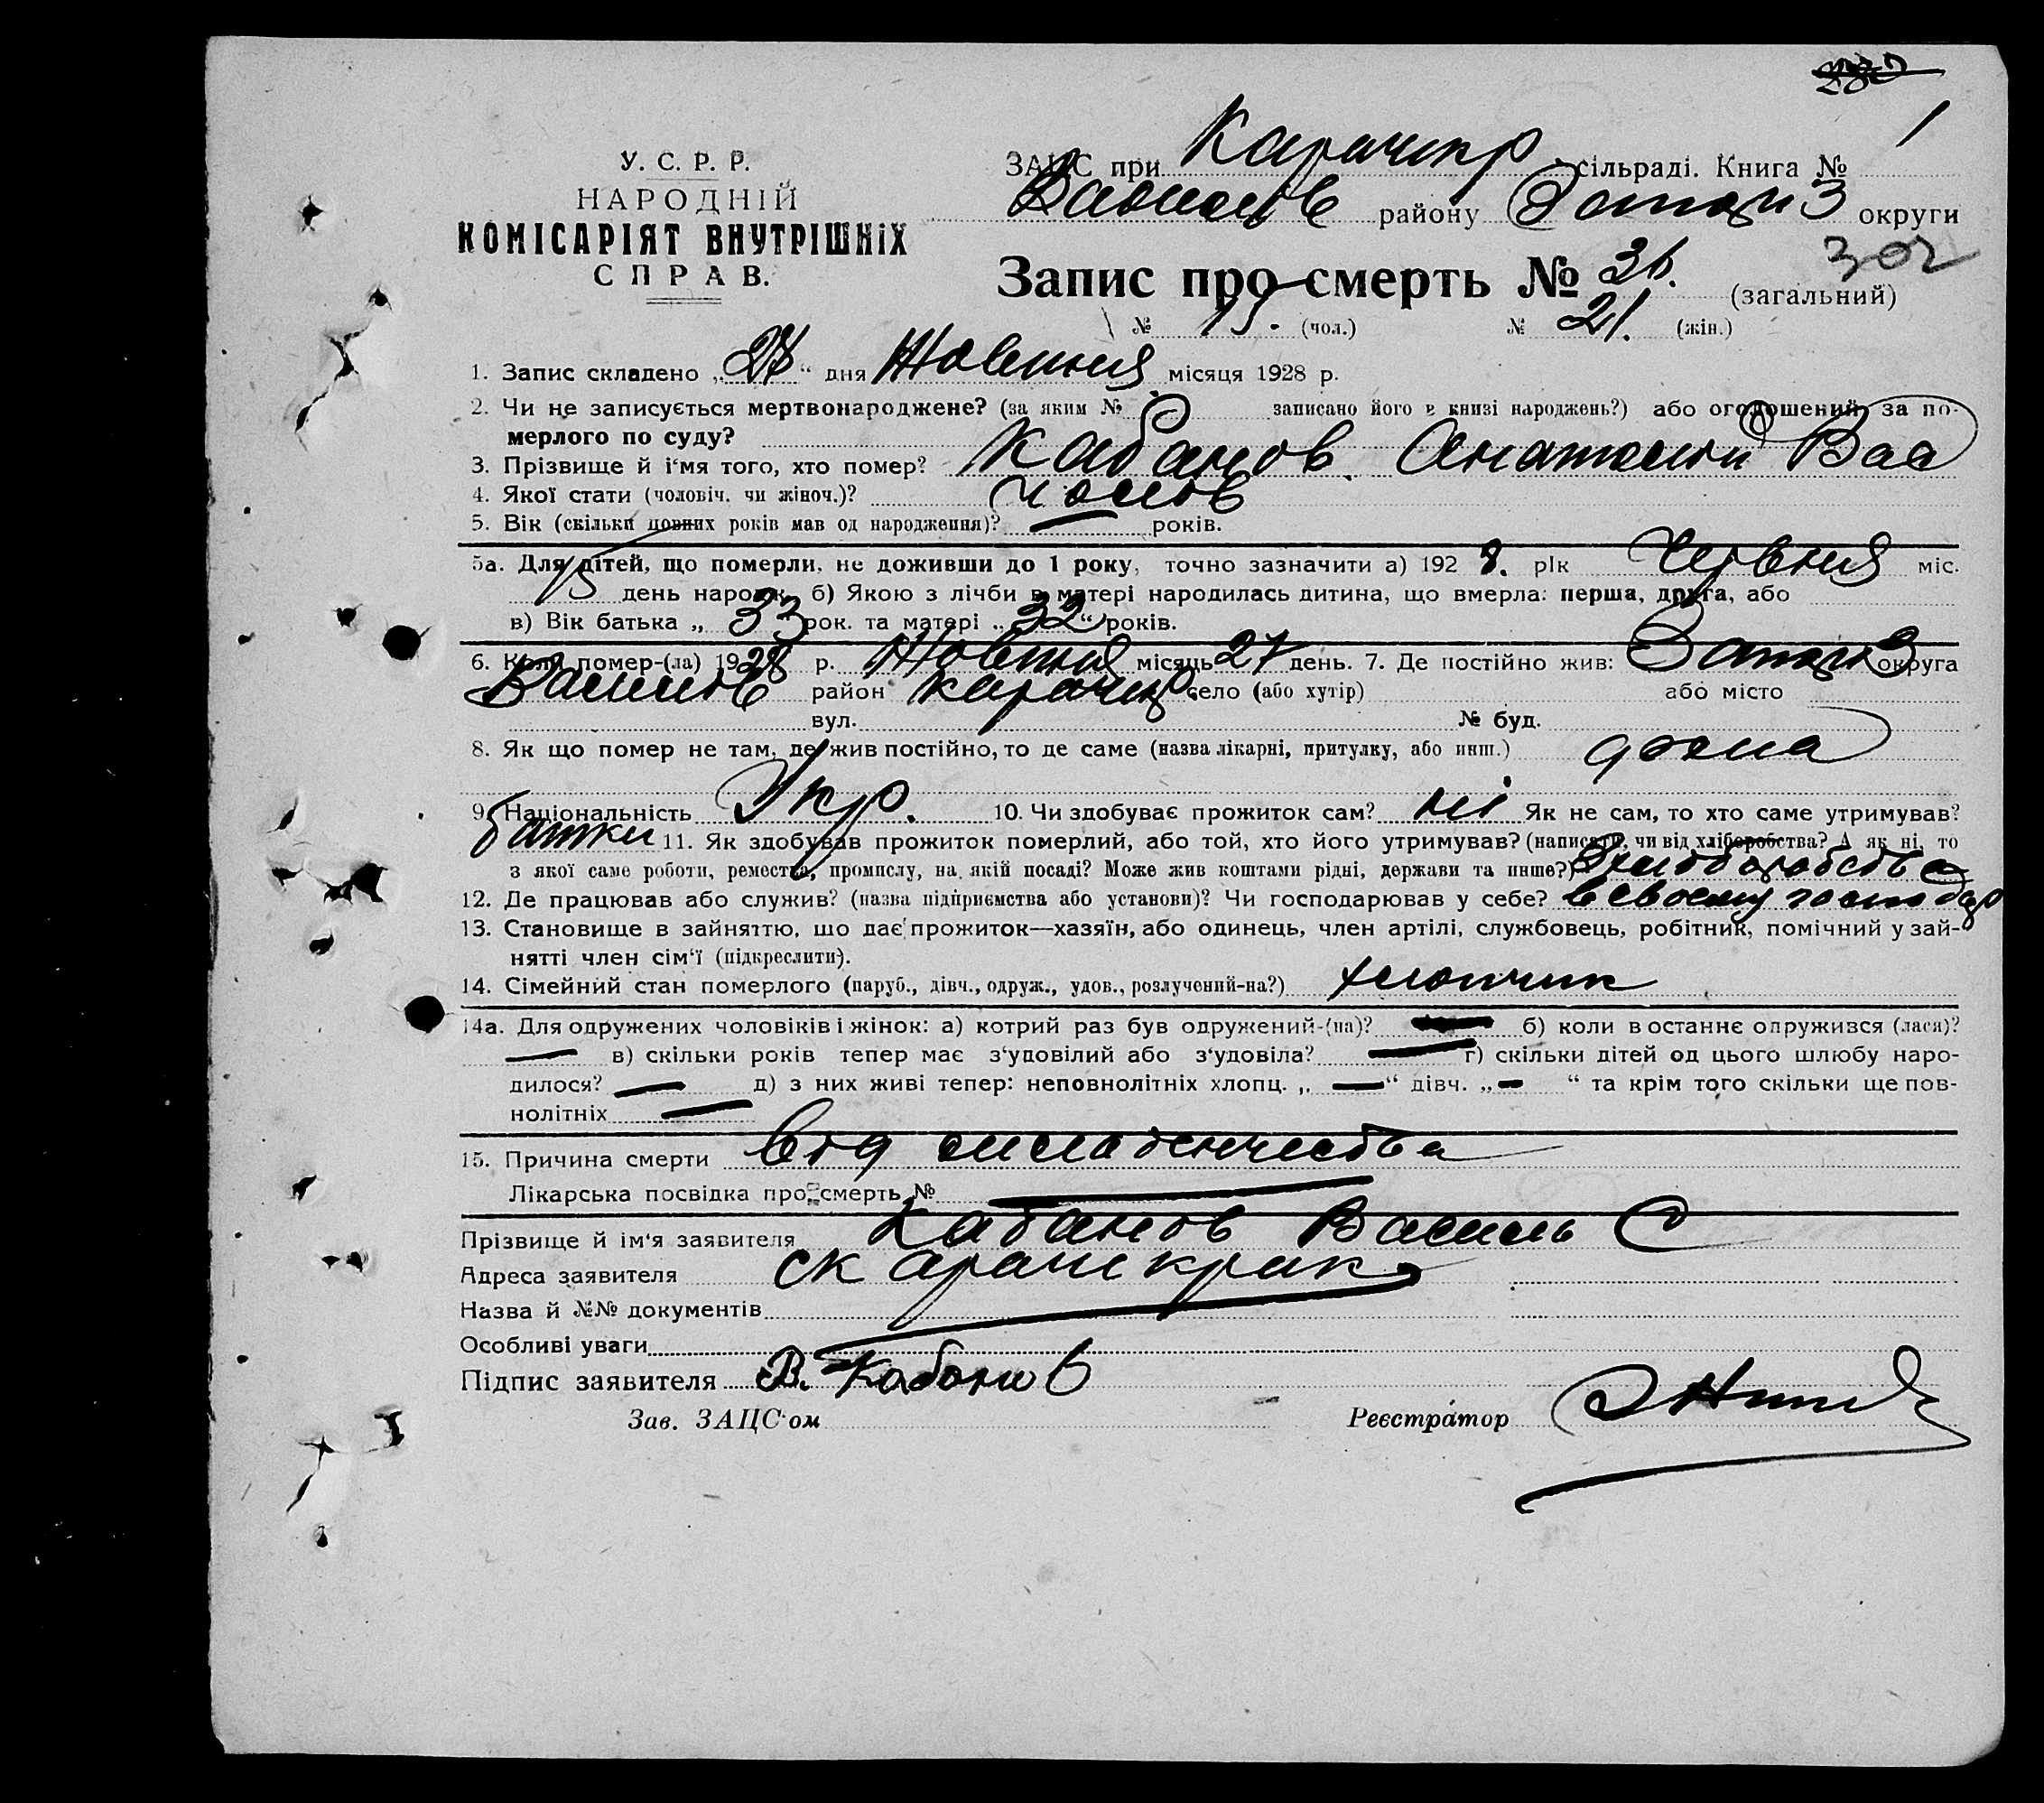 У. С. Р. Р.
НАРОДНІЙ
КОМІСАРІЯТ ВНУТРІШНІХ
СПРАВ.
1
ЗАЦС при Карачикр сільраді. Книга №
Василів району Запоріз округи
302
Запис про смерть № 36. (загальний)
№ 15. (чол.) № 21. (жін.)
1. Запис складено „ 27 “ дня Жовтня місяця 1928 р.
2. Чи не записується мертвонароджене? (за яким № записано його в книзі народжень?) або оголошений за по-
мерлого по суду?
3. Прізвище й і'мя того, хто помер? Кабанов Анатолій Вас
4. Якої стати (чоловіч. чи жіноч.)? чолов
5. Вік (скільки повних років мав од народження)? — років.
5а. Для дітей, що померли, не доживши до 1 року, точно зазначити а) 192 8. рік Червня міс.
15 день народж. б) Якою з лічби в матері народилась дитина, що вмерла: перша, друга, або
в) Вік батька „ 33 рок. та матері „ 32 “ років.
6. Коли помер-(ла) 1928 р. Жовтня місяць 27 день. 7. Де постійно жив: Запоріз округа
Василів район Карачикр село (або хутір) або місто
вул. № буд.
8. Як що помер не там, де жив постійно, то де саме (назва лікарні, притулку, або инш.) дома
9. Національність Укр. 10. Чи здобуває прожиток сам? ні Як не сам, то хто саме утримував?
батки 11. Як здобував прожиток померлий, або той, хто його утримував? (написати, чи від хліборобства? А як ні, то
з якої саме роботи, ремества, промислу, на якій посаді? Може жив коштами рідні, держави та инше?) Хліборобство
12. Де працював або служив? (назва підприємства або установи)? Чи господарював у себе? в своему господар
13. Становище в зайняттю, що дає прожиток—хазяїн, або одинець, член артілі, службовець, робітник, помічний у зай-
нятті член сім'ї (підкреслити).
14. Сімейний стан померлого (паруб., дівч., одруж., удов., розлучений-на?) хлопчик
14а. Для одружених чоловіків і жінок: а) котрий раз був одружений-(на)? — б) коли в останнє одружився (лася)?
— в) скільки років тепер має з'удовілий або з'удовіла? — г) скільки дітей од цього шлюбу наро-
дилося? — д) з них живі тепер: неповнолітніх хлопц. „ — “ дівч. „ — “ та крім того скільки ще пов-
нолітніх —
15. Причина смерти від младенчества
Лікарська посвідка про смерть № —
Прізвище й ім'я заявителя Кабанов Василь С
Адреса заявителя с Карачекрак
Назва й №№ документів
Особливі уваги
Підпис заявителя В. Кабанов
Зав. ЗАЦС'ом Реєстратор